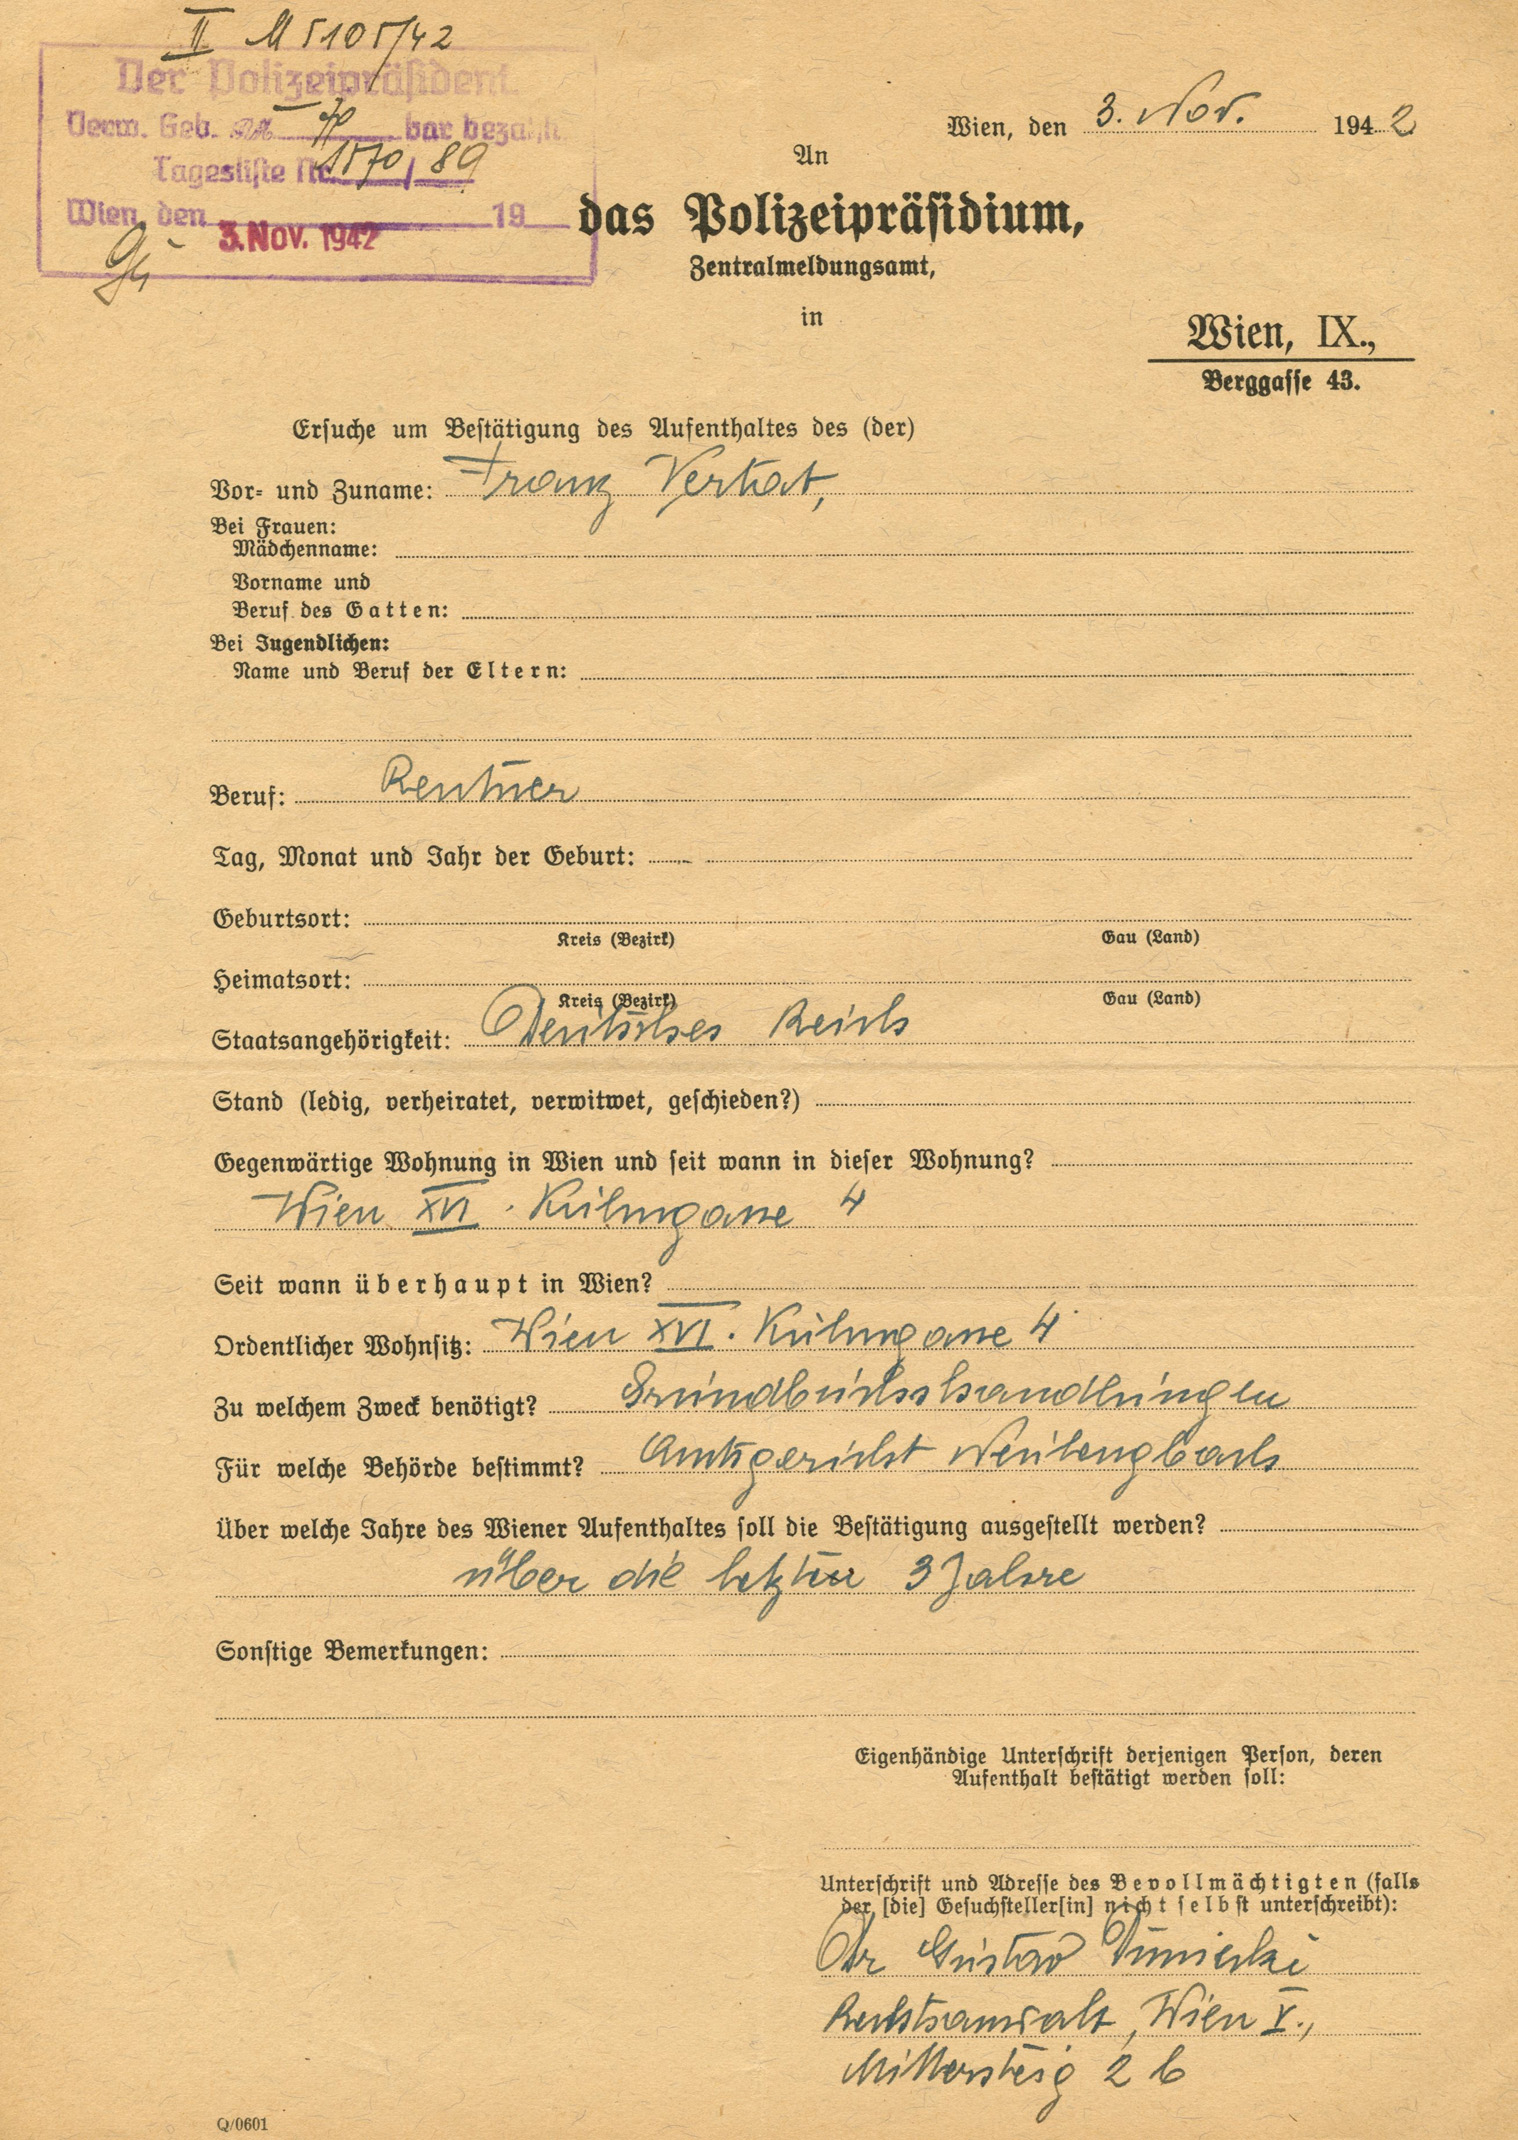 II M 5105/42
Der Polizeipräsident
Verw. Geb. RM bar bezahlt
Tagesliste Nr. 1570/89
Wien, den 19
3. Nov. 1942
Wien, den 3. Nov. 1942
An
das Polizeipräsidium,
Zentralmeldungsamt,
in
Wien, IX.,
Berggasse 43.
Ersuche um Bestätigung des Aufenthaltes des (der)
Vor- und Zuname: Franz Verkat,
Bei Frauen:
Mädchenname:
Vorname und
Beruf des Gatten:
Bei Jugendlichen:
Name und Beruf der Eltern:
Beruf: Rentner
Tag, Monat und Jahr der Geburt:
Geburtsort:
Kreis (Bezirk) Gau (Land)
Heimatsort:
Kreis (Bezirk) Gau (Land)
Staatsangehörigkeit: Deutsches Reich
Stand (ledig, verheiratet, verwitwet, geschieden?)
Gegenwärtige Wohnung in Wien und seit wann in dieser Wohnung?
Wien XVI. 4
Seit wann überhaupt in Wien?
Ordentlicher Wohnsitz: Wien XVI. 4
Zu welchem Zweck benötigt? Grundbuchshandlungen
Für welche Behörde bestimmt? Amtsgericht Neulengbach
Über welche Jahre des Wiener Aufenthaltes soll die Bestätigung ausgestellt werden?
über die letzten 3 Jahre
Sonstige Bemerkungen:
Eigenhändige Unterschrift derjenigen Person, deren
Aufenthalt bestätigt werden soll:
Unterschrift und Adresse des Bevollmächtigten (falls
der [die] Gesuchsteller[in] nicht selbst unterschreibt):
Dr Gustav Dunicki
Rechtsanwalt, Wien V.,
Mittersteig 2 b
Q/0601